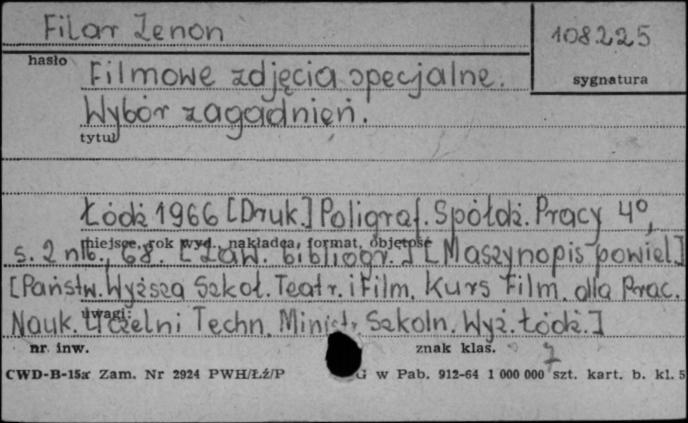 Filar Zenon
108225
hasło
sygnatura
Filmowe zdjęcia specjalne.
Wybór zagadnień.
tytuł
Łódź 1966 [Druk.] Poligraf. Spółdz. Pracy 4°,
miejsce, rok wyd., nakładca, format, objętość
s. 2 nlb., 68. [Zaw. bibliogr.] [Maszynopis powiel.]
[Państw. Wyższa Szkoł. Teatr. i Film. Kurs Film. dla Prac.
uwagi:
Nauk. Uczelni Techn. Minist. Szkoln. Wyż. Łódź.]
nr. inw.
znak klas.
7
CWD-B-15a Zam. Nr 2924 PWH/Łź/P G w Pab. 912-64 1 000 000 szt. kart. b. kl. 5